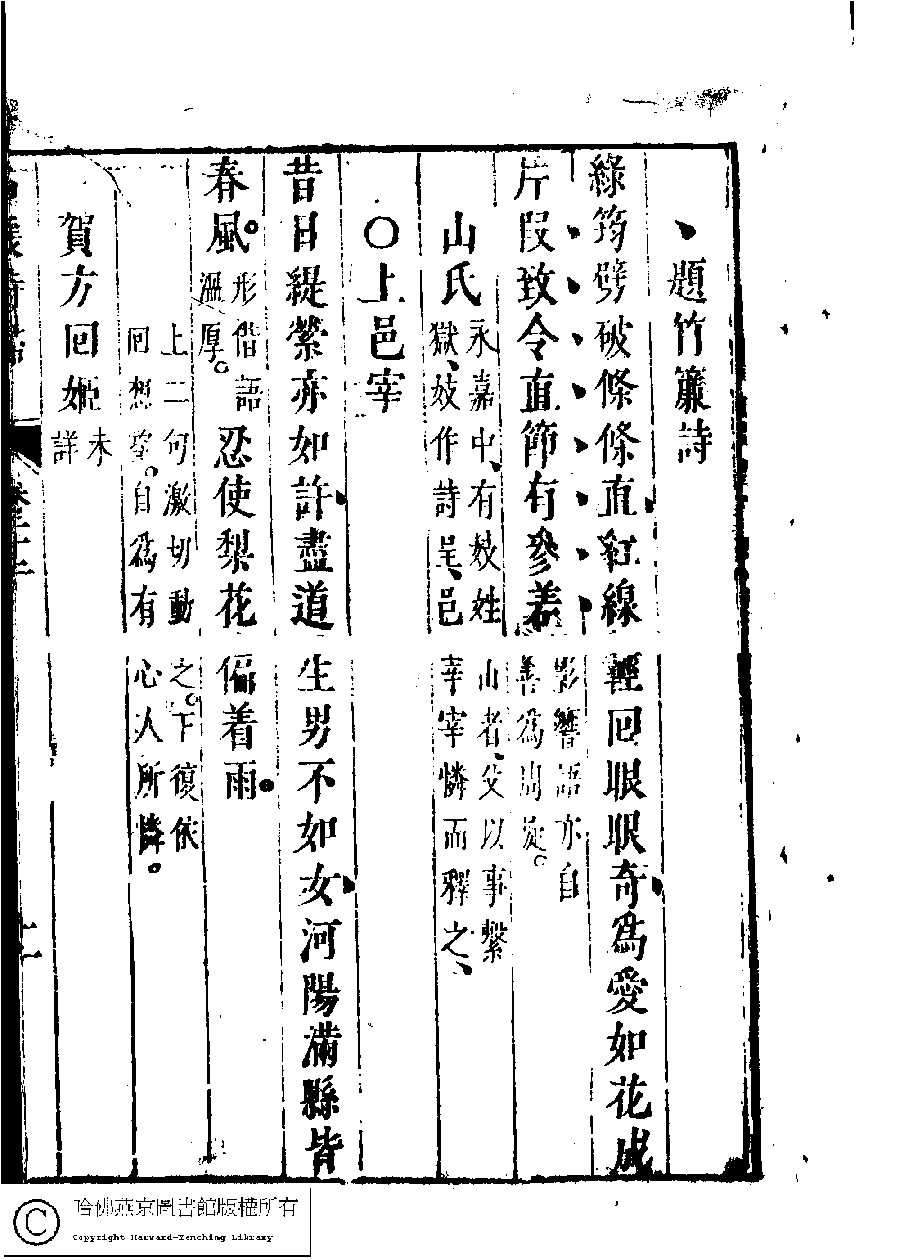 題竹簾詩
綠筠劈破條條直紅線輕回眼眼奇爲愛如花成
片段致令直節有參差影響語亦自善爲周旋。
山氏永嘉中、有妓姓山者、父以事繫獄、妓作詩呈、邑宰憐而釋之、
○上邑宰
昔日緹縈亦如許盡道生男不如女河陽滿縣皆
春風。形偕語溫厚。忍使梨花偏着雨。
上二句激切動之。下復依回想望。自爲有心人所憐。
賀方回姬未詳
名媛詩歸
卷二十
二
哈佛燕京圖書館版權所有
Copyright Harvard-Yenching Library